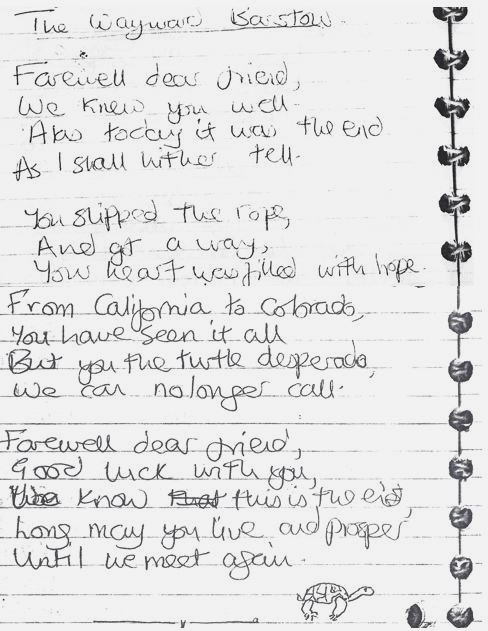 The Wayward Barstow
Farewell dear friend,
We knew you well.
Alas today it was the end
As I shall hither tell.
You slipped the rope,
And got a way,
Your heart was filled with hope.
From California to Colorado,
You have seen it all
But you the turtle desperado,
We can no longer call.
Farewell dear friend,
Good luck with you,
know that this is the end,
Long may you live and prosper
Until we meet again.